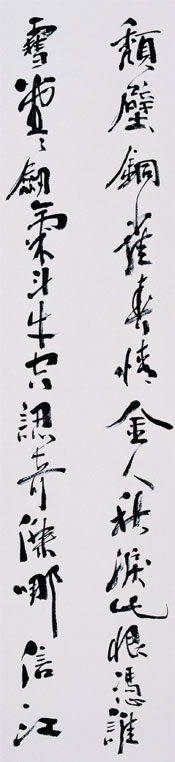 頹壁銅雀春情金人秋淚此恨憑誰
雪堂々劍氣斗牛空認奇傑哪信江